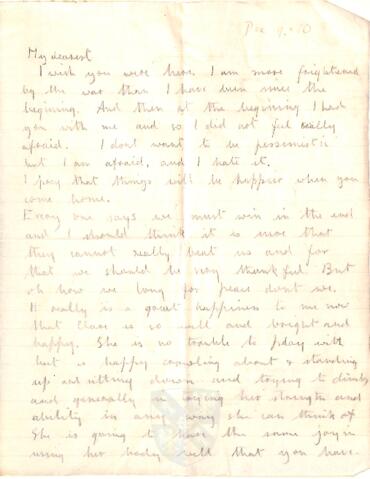 Dec 9. 10
My dearest
I wish you were here. I am more frightened
by the war than I have been since the
begining. And then at the beginning I had
you with me and so I did not feel really
afraid. I dont want to be pessemistic
but I am afraid, and I hate it.
I pray that things will be happier when you
come home.
Every one says we must win in the end
and I should think it is more that
they cannot really beat us and for
that we should be very thankful. But
oh how we long for peace dont we.
It really is a great happiness to me now
that Clare is so well and bright and
happy. She is no trouble to play with
but is happy crawling about & standing
up and sitting down and trying to climb
and generally in trying her strength and
ability in any way she can think of
She is going to have the same joy in
using her body well that you have.